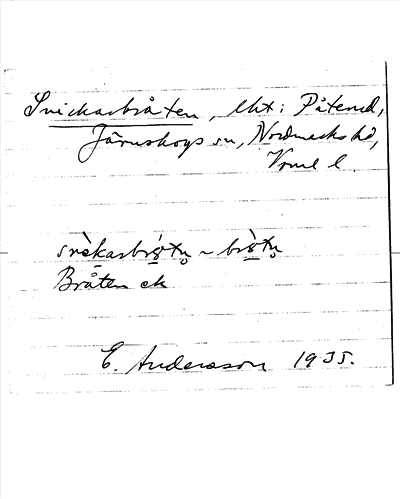 Snickarbråten, lht: Påterud,
Järnskogs sn, Nordmarks hd,
Vrml l.
snèkarbrɷ́tn̥ ~ brɷ̀tn̥
Bråten ek
E. Andersson 1935.